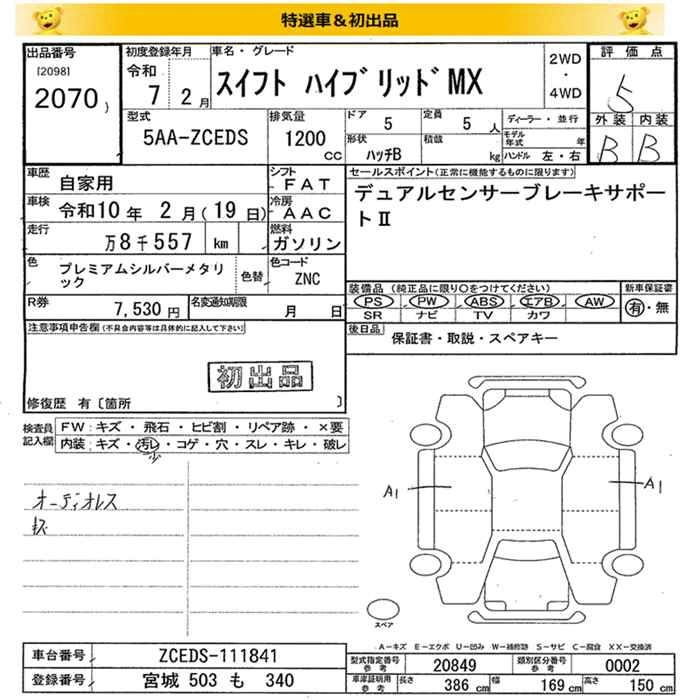 特選車＆初出品
出品番号
[2098]
2070 )
初度登録年月
令和
7 2月
車名・グレード
スイフト ハイブリッドMX
2WD
・
4WD
評価点
5
外装 内装
B B
型式
5AA-ZCEDS
排気量
1200
CC
ドア
5
定員
5 人
形状
ハッチB
積載
kg
ディーラー・並行
モデル年式 年
ハンドル 左・右
車歴
自家用
シフト
FAT
車検 令和10年 2月(19日)
冷房
AAC
走行
万8千557 km
燃料
ガソリン
色
プレミアムシルバーメタリック
色替
色コード
ZNC
R券
7,530円
名変通知期限
月 日
セールスポイント(正常に機能するものに限ります)
デュアルセンサーブレーキサポートⅡ
装備品 (純正品に限り○をつけてください)
PS PW ABS エアB AW
SR ナビ TV カワ
新車保証書
有・無
後日品
保証書・取説・スペアキー
注意事項申告欄(不具合内容等は具体的に記入して下さい)
初出品
修復歴 有〔箇所 〕
検査員記入欄
FW: キズ ・ 飛石 ・ ヒビ割 ・ リペア跡 ・ ×要
内装: キズ ・ 汚レ ・ コゲ ・ 穴 ・ スレ ・ キレ ・ 破レ
小
オーディオレス
A1
A1
スペア
A－キズ E－エクボ U－凹み W－補修跡 S－サビ C－腐食 XX－交換済
車台番号 ZCEDS-111841
登録番号 宮城 503 も 340
型式指定番号
参考
20849
類別区分番号
参考
0002
車庫証明用
参考
長さ 386 cm
幅 169 cm
高さ 150 cm